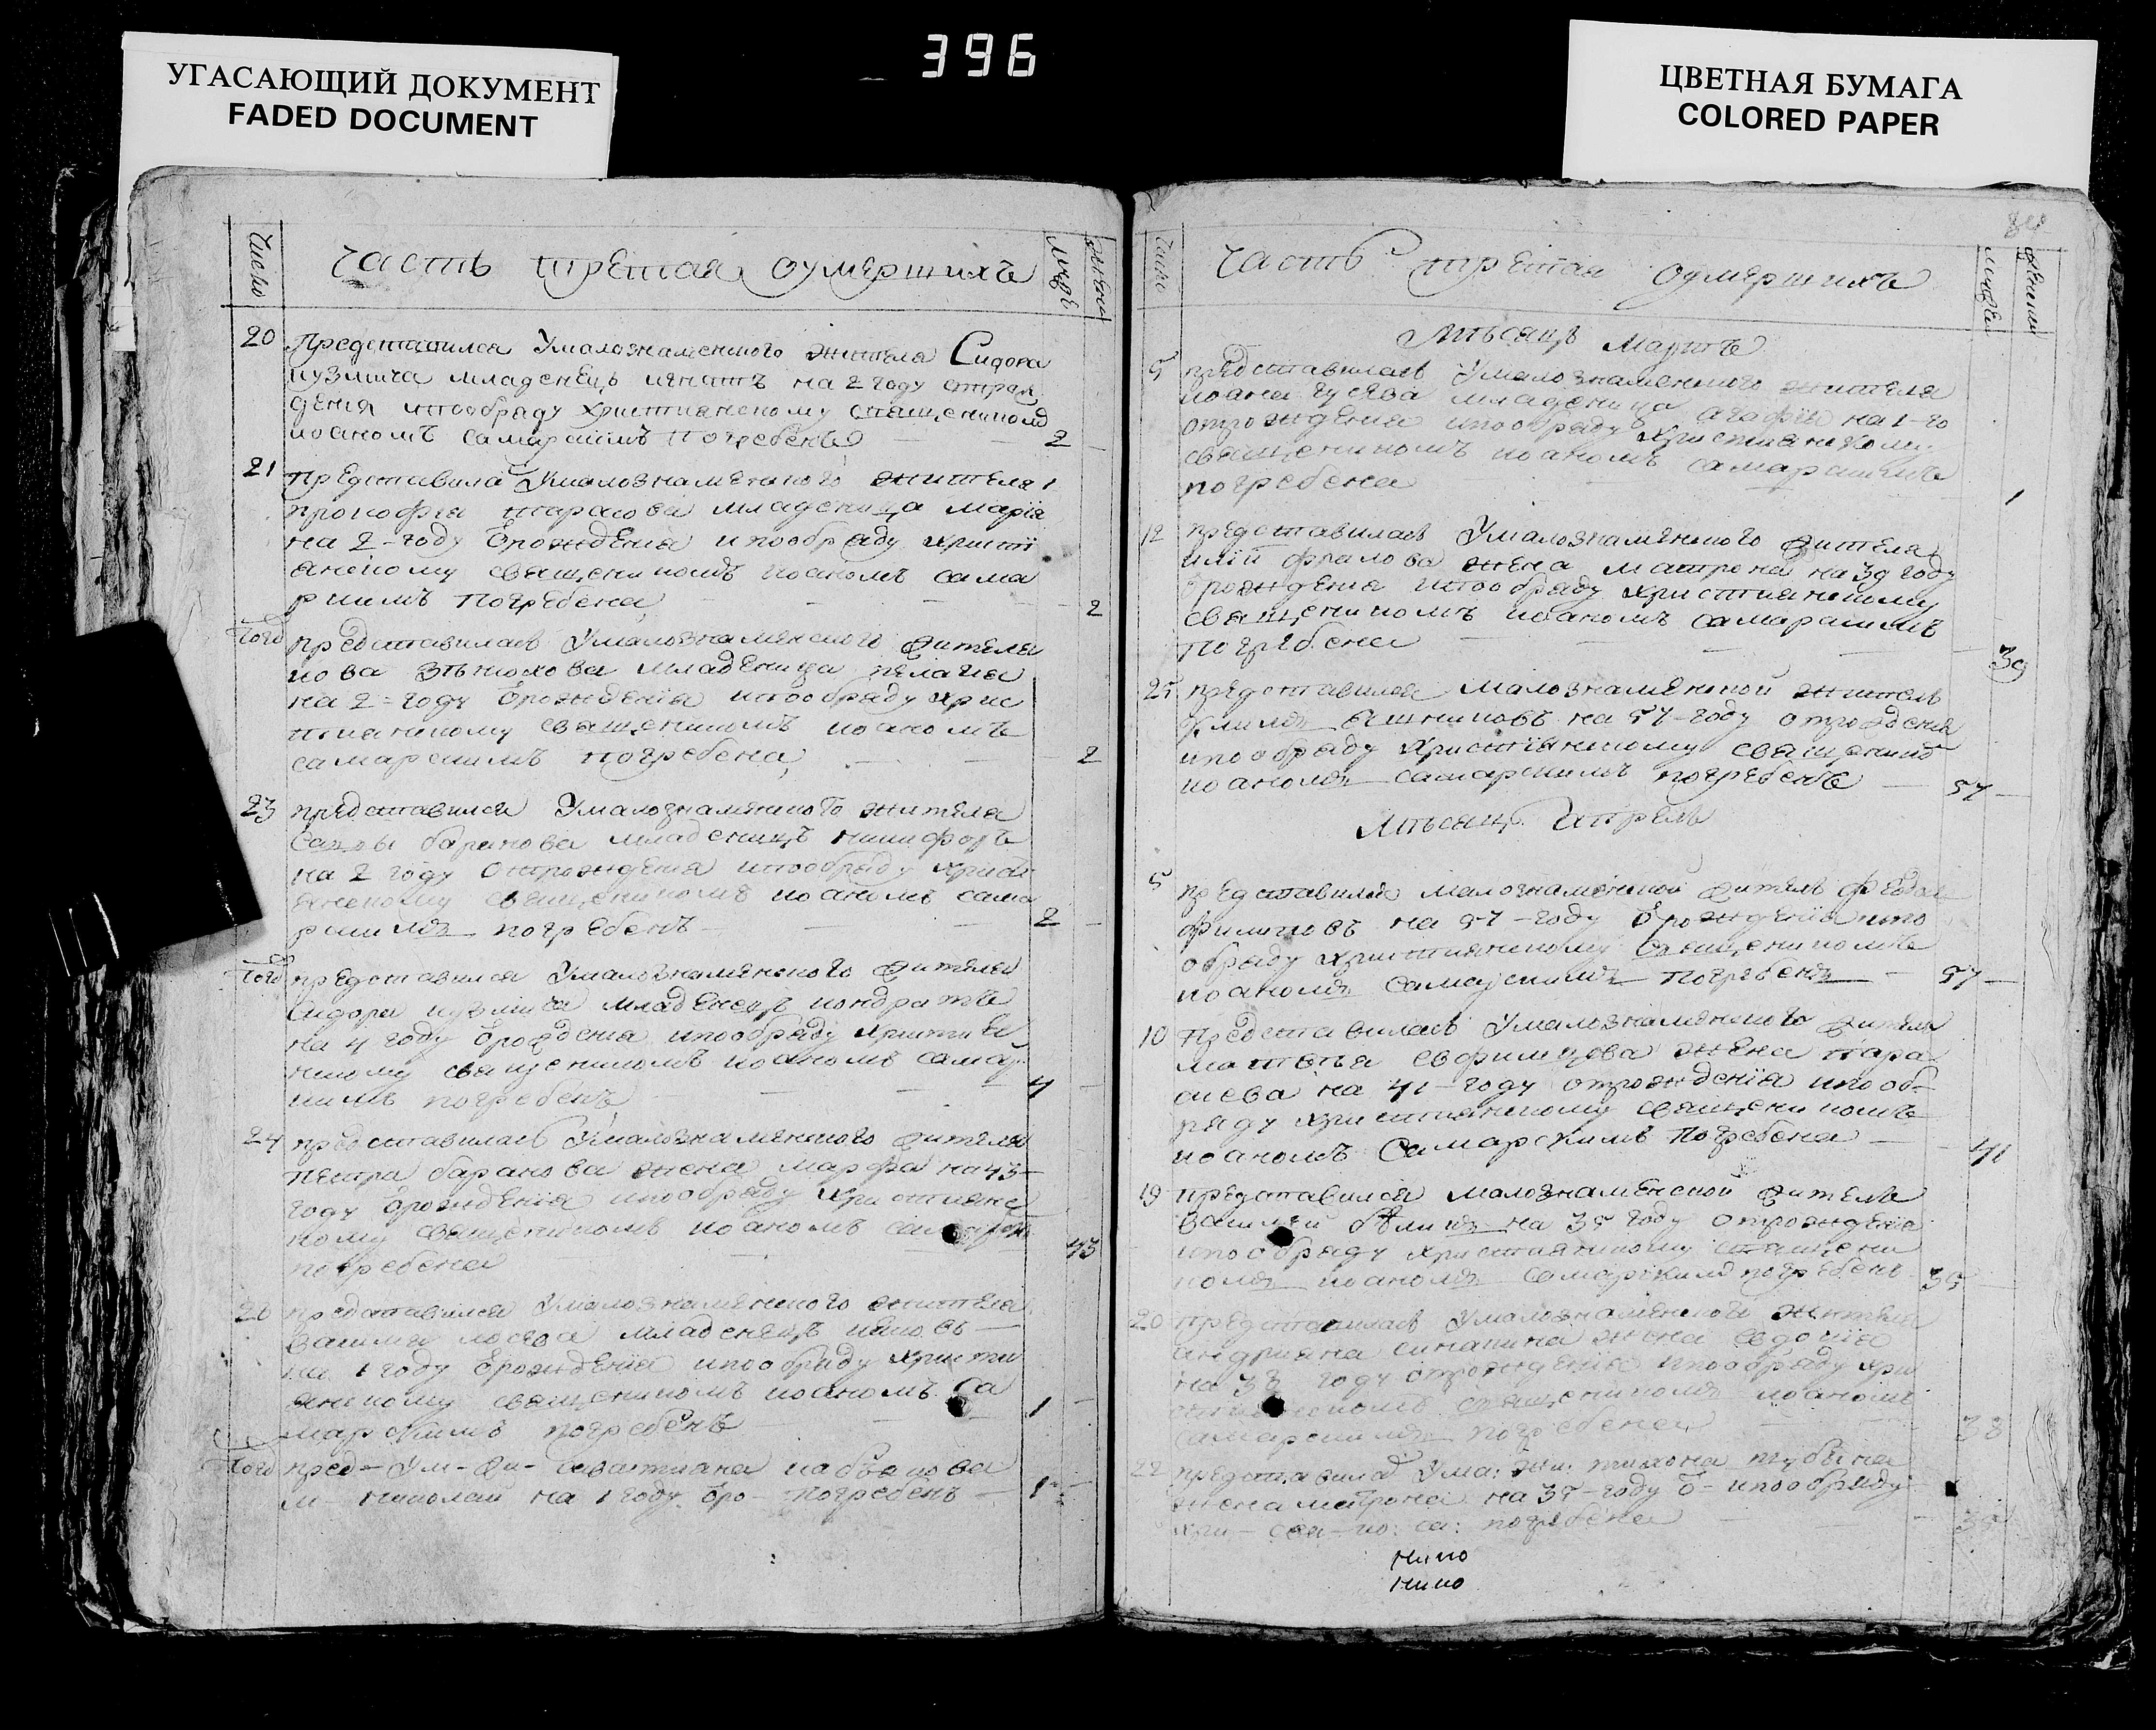 396
УГАСАЮЩИЙ ДОКУМЕНТ
FADED DOCUMENT
ЦВЕТНАЯ БУМАГА
COLORED PAPER
Число
Часть третая оумершихъ
20 Представился Умалознаменского жителя Сидора
кузмича младенецъ игнатъ на 2 году отрож
дения ипообряду християнскому священиком
иоаномъ самарскимъ погребенъ 2
21 представила Умалознаменского жителя
прокофия тарасова младеница марія
на 2-году Ѿрождения ипообряду христи
анскому священикомъ иоаномъ сама
рскимъ погребена 2
Того представилась Умалознаменского жителя
младеница пелагия
на 2-году Ѿрожденіа ипообряду хрис
тианскому священикомъ иоаномъ
самарскимъ погребена 2
23 представился Умалознаменского жителя
Савы баранова младенецъ никифоръ
на 2 году отрождения ипообряду христи
анскому священикомъ иоаномъ сама
рскимъ погребенъ 2
Того представился Умалознаменского жителя
Сидора кузмича младенецъ кондратъ
на 4 году Ѿрождения ипообряду христиа
нскому священикомъ иоаномъ самар
скимъ погребенъ 4
24 представилась Умалознаменского жителя
петра баранова жена марфа на 43
году Ѿрожденіа ипообряду християнс
кому священикомъ иоаномъ
погребена 43
26 представился Умалознаменского жителя
василия младенецъ
на 1 году Ѿрожденіа ипообряду христи
анскому священикомъ иоаномъ са
марскимъ погребенъ 1
Того пред- Ум- Жи-
м- николай на 1 году Ѿро- погребенъ 1
Число Часть третая оумершихъ
Мѣсяцъ Мартъ
5 представилась Умалознаменского жителя
иоана гусева младеница агафія на 1-го
отрождения ипообряду християнскому
священикомъ иоаномъ самарскимъ
погребена 1
12 представилась Умалознаменского жителя
илїи фралова жена матрона на 39 году
Ѿрождения ипообряду християнскому
священикомъ иоаномъ самарскимъ
погребена 39
25 представился малознаменской житель
на 57-году отрождения
ипообряду християнскому священико
иоаномъ самарскимъ погребенъ 57
Мѣсяцъ Апрель
5 представился малознаменской житель
филиповъ на 57-году Ѿрожденіа ипо
обряду християнскому священикомъ
иоаномъ самарскимъ погребенъ 57
10 Представилась Умалознаменского жителя
матвѣя ефимцова жена пара
скева на 41-году отрожденіа ипооб
ряду християнскому священикомъ
иоаномъ Самарскимъ погребена 41
19 представился малознаменской житель
василей на 35 году отрожденіа
ипообряду християнскому священи
комъ иоаномъ самарскимъ погребенъ 35
20 представилась Умалознаменского жителя
андрияна синапина жена евдокїа
на 38 году отрожденіа ипообряду хри
священикомъ иоаномъ
самарскимъ погребена 38
22 представила Ума: жи: тихона
жена матрона на 35-году Ѿ- ипообряду
хри- свя- ио: са: погребена 35